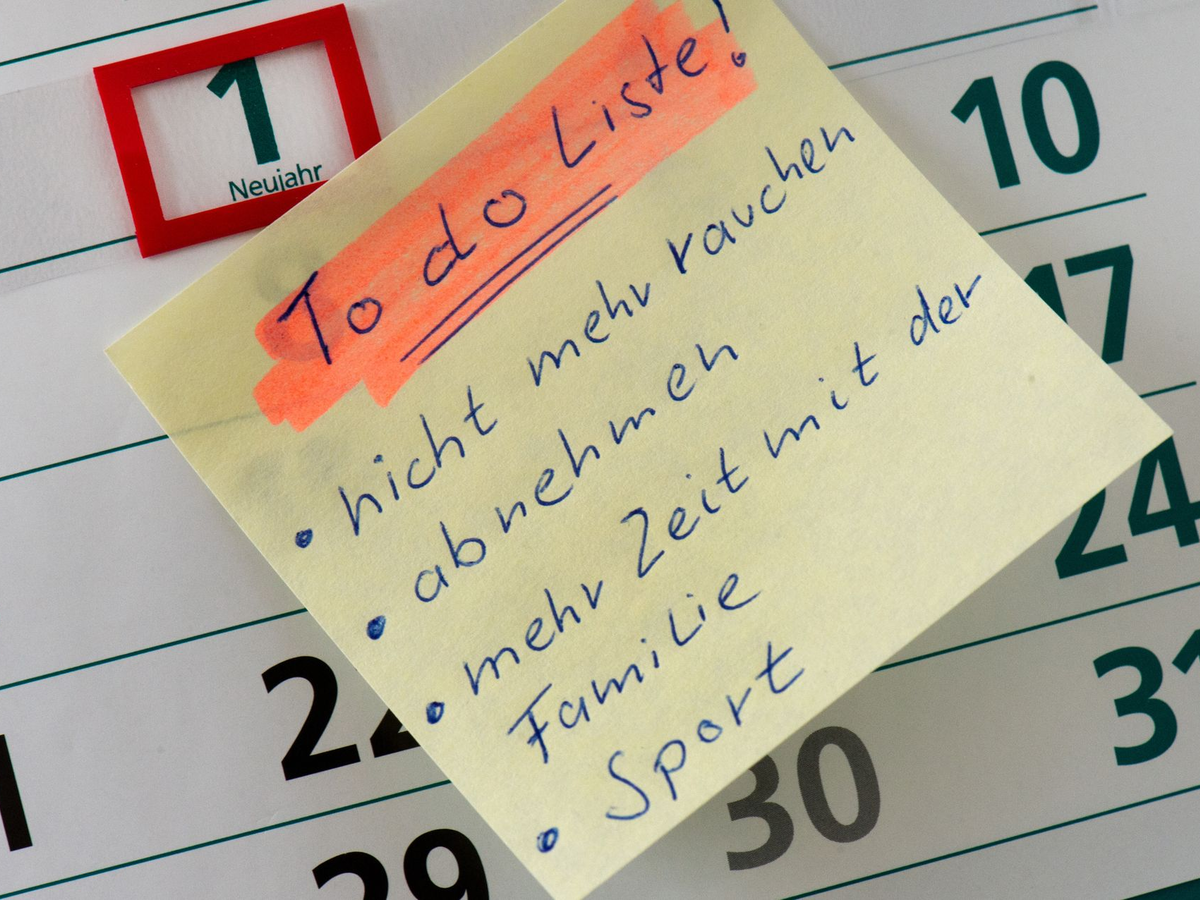 1
Neujahr
10
17
24
31
22
30
29
To do Liste!
• nicht mehr rauchen
• abnehmen
• mehr Zeit mit der
Familie
• Sport